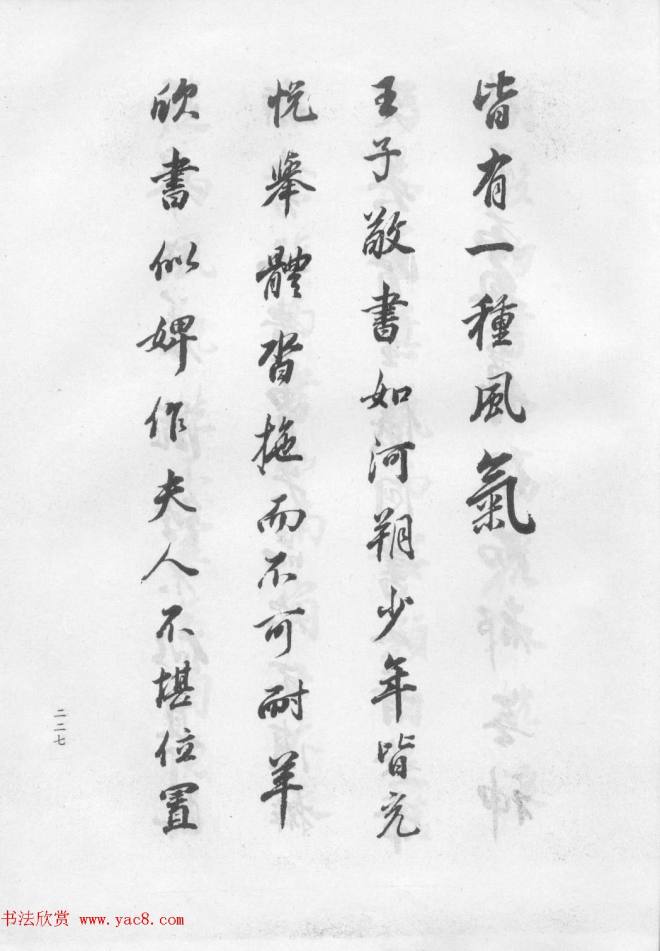 皆有一種風氣
王子敬書如河朔少年皆充
悅舉體沓拖而不可耐羊
欣書似婢作夫人不堪位置
二二七
书法欣赏 www.yac8.com